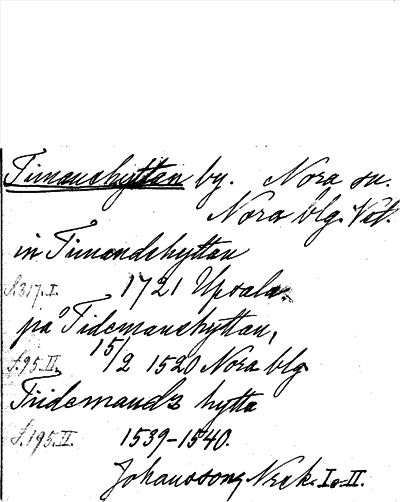 Timanshyttan by. Nora sn.
Nora blg. Vst.
in Timandshyttan
s. 317. I. 1721 Upsala.
på Tidemanshyttan,
s. 95. II. 15/2 1520 Nora blg
Tridemandz hytta
s. 195. II. 1539-1540.
Johanssons, I o. II.